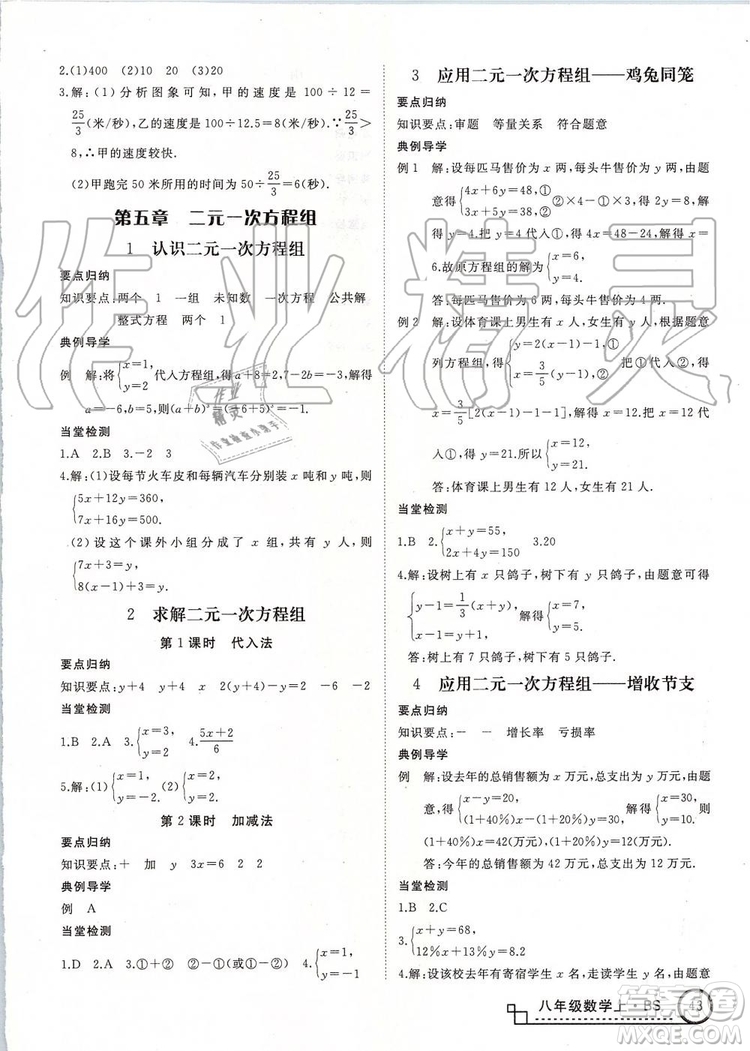 2.(1)400 (2)10 20 (3)20
3.解:(1)分析图象可知,甲的速度是100÷12=
25/3(米/秒),乙的速度是100÷12.5=8(米/秒).∵25/3>
8,∴甲的速度较快.
(2)甲跑完50米所用的时间为50÷25/3=6(秒).
第五章 二元一次方程组
1 认识二元一次方程组
要点归纳
知识要点:两个 1 一组 未知数 一次方程 公共解
整式方程 两个 1
典例导学
例 解:将{x=1, y=2}代入方程组,得a+8=2,7-2b=-3,解得
a=-6,b=5,则(a+b)³=(-6+5)³=-1.
当堂检测
1.A 2.B 3.-2 3
4.解:(1)设每节火车皮和每辆汽车分别装x吨和y吨,则
{5x+12y=360,
7x+16y=500.
(2)设这个课外小组分成了x组,共有y人,则
{7x+3=y,
8(x-1)+3=y.
2 求解二元一次方程组
第1课时 代入法
要点归纳
知识要点:y+4 y+4 x -2 2 -2 -6 -2
当堂检测
1.B 2.A 3.{x=3, y=2 4.(5x+2)/6
5.解:(1){x=1, y=-2. (2){x=2, y=-1.
第2课时 加减法
要点归纳
知识要点:+ 加 y 3x=6 2 2
典例导学
例 A
当堂检测
1.D 2.A 3.①+② ②-①(或①-②) 4.{x=1, y=-1
3 应用二元一次方程组——鸡兔同笼
要点归纳
知识要点:审题 等量关系 符合题意
典例导学
例1 解:设每匹马售价为x两,每头牛售价为y两,由题
意得{4x+6y=48,① 2x+5y=38,② ②×4-①×2,得8y=56,解
得y=4.把y=4代入①,得4x=48-24,解得x=
6.故原方程组的解为{x=6, y=4.
答:每匹马售价为6两,每头牛售价为4两.
例2 解:设体育课上男生有x人,女生有y人,根据题意
列方程组{y=2(x-1)-1,① x=3/5(y-1).② 把①代入②,得
x=3/5[2(x-1)-1-1],解得x=12.把x=12代
入①,得y=21.
答:体育课上男生有12人,女生有21人.
当堂检测
1.B 2.{x+y=55, 2x+4y=150 3.20
4.解:设树上有x只鸽子,树下有y只鸽子,由题意得
{y-1=1/3(x+y), x-1=y+1, 解得{x=7, y=5.
答:树上有7只鸽子,树下有5只鸽子.
4 应用二元一次方程组——增收节支
要点归纳
知识要点:- - 增长率 亏损率
典例导学
例 解:设去年的总销售额为x万元,总支出为y万元,由题
(1+40%)x=42(万元),总支出为
答:今年的总销售额为42万元,
当堂检测
1.B 2.C
3.{x+y=68,
12%x+10%y=8.2
4.解:设该校去年有寄宿学生x名,走读学生y名,由题意
八年级数学上·BS
43
作业精灵